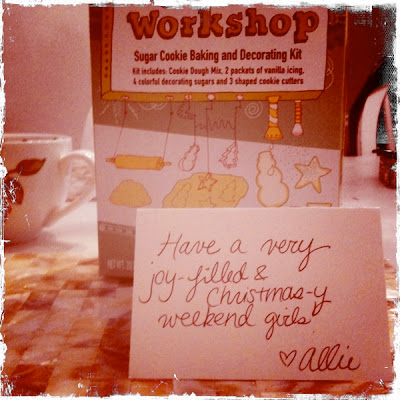 Workshop
Sugar Cookie Baking and Decorating Kit
Kit includes: Cookie Dough Mix, 2 packets of vanilla icing,
4 colorful decorating sugars and 3 shaped cookie cutters
Have a very
joy-filled &
Christmas-y
weekend girls!
♡ Allie